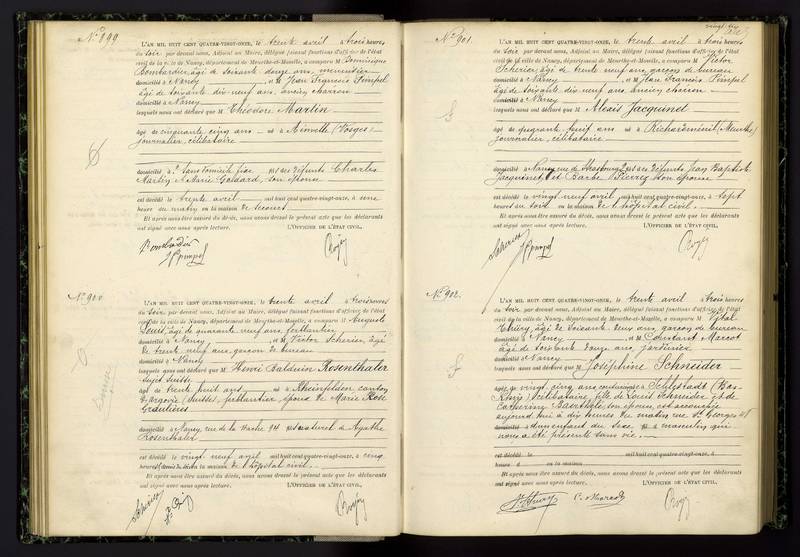 N° 899
L'AN MIL HUIT CENT QUATRE-VINGT-ONZE, le trente avril à trois heures
du soir par devant nous, Adjoint au Maire, délégué faisant fonctions d'officier de l'état
civil de la ville de Nancy, département de Meurthe-et-Moselle, a comparu M Dominique
Bombardier, âgé de soixante douze ans, menuisier
domicilié à Nancy et M Jean François Pimpel
âgé de soixante dix neuf ans, ancien charron
domicilié à Nancy
lesquels nous ont déclaré que M Théodore Martin
âgé de cinquante cinq ans né à (Vosges)
journalier, célibataire
domicilié à sans domicile fixe fils des défunts Charles
Martin et Marie Godard, son épouse
est décédé le trente avril mil huit cent quatre-vingt-onze, à une
heure du matin en la maison de secours
Et après nous être assuré du décès, nous avons dressé le présent acte que les déclarants
ont signé avec nous après lecture. L'OFFICIER DE L'ÉTAT CIVIL,
N° 900
L'AN MIL HUIT CENT QUATRE-VINGT-ONZE, le trente avril à trois heures
du soir par devant nous, Adjoint au Maire, délégué faisant fonctions d'officier de l'état
civil de la ville de Nancy, département de Meurthe-et-Moselle, a comparu M Auguste
âgé de quarante neuf ans, ferblantier
domicilié à Nancy et M Victor Scherier, âgé
de trente neuf ans, garçon de bureau
domicilié à Nancy
lesquels nous ont déclaré que M Henri Balduin Rosenthaler
sujet Suisse
âgé de trente huit ans né à Rheinfelden canton
d'Argovie (Suisse), ferblantier, époux de Marie Rose
domicilié à Nancy, rue de la Hache 94 fils naturel de Agathe
Rosenthaler
est décédé le vingt neuf avril mil huit cent quatre-vingt-onze, à cinq
heures du soir en la maison de l'hôpital civil.
Et après nous être assuré du décès, nous avons dressé le présent acte que les déclarants
ont signé avec nous après lecture. L'OFFICIER DE L'ÉTAT CIVIL,
N° 901
L'AN MIL HUIT CENT QUATRE-VINGT-ONZE, le trente avril à trois heures
du soir par devant nous, Adjoint au Maire, délégué faisant fonctions d'officier de l'état
civil de la ville de Nancy, département de Meurthe-et-Moselle, a comparu M Victor
Scherier, âgé de trente neuf ans, garçon de bureau
domicilié à Nancy et M Jean François Pimpel
âgé de soixante dix neuf ans, ancien charron
domicilié à Nancy
lesquels nous ont déclaré que M Alexis Jacquinet
âgé de quarante huit ans né à Richardménil (Meurthe)
journalier, célibataire
domicilié à Nancy, rue de Strasbourg fils des défunts Jean Baptiste
Jacquinet et Barbe Pierrez son épouse
est décédé le vingt neuf avril mil huit cent quatre-vingt-onze, à sept
heures du soir en la maison de l'hôpital civil.
Et après nous être assuré du décès, nous avons dressé le présent acte que les déclarants
ont signé avec nous après lecture. L'OFFICIER DE L'ÉTAT CIVIL,
N° 902
L'AN MIL HUIT CENT QUATRE-VINGT-ONZE, le trente avril à trois heures
du soir par devant nous, Adjoint au Maire, délégué faisant fonctions d'officier de l'état
civil de la ville de Nancy, département de Meurthe-et-Moselle, a comparu M Vital
Thiéry, âgé de soixante deux ans, garçon de bureau
domicilié à Nancy et M Constant Marcot
âgé de soixante douze ans, jardinier
domicilié à Nancy
lesquels nous ont déclaré que M Joséphine Schneider
âgée de vingt cinq ans, née à Schlestadt (Bas-
Rhin) célibataire, fille de Louis Schneider et de
Catherine son épouse, est accouchée
aujourd'hui à dix heures du matin rue St Georges
d'un enfant du sexe masculin qui
nous a été présenté sans vie.
est décédé le mil huit cent quatre-vingt-onze, à
heure d en la maison
Et après nous être assuré du décès, nous avons dressé le présent acte que les déclarants
ont signé avec nous après lecture. L'OFFICIER DE L'ÉTAT CIVIL,